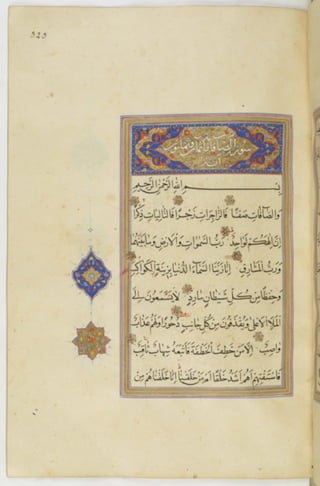 323
سورة الصافات مائة واثنتان وثمانون
آية
بسم الله الرحمن الرحيم
والصافات صفا فالزاجرات زجرا فالتاليات ذكرا
ان الهكم لواحد رب السموات والارض وما بينهما
ورب المشارق انا زينا السماء الدنيا بزينة الكواكب
وحفظا من كل شيطان مارد لا يسمعون الى
الملا الاعلى ويقذفون من كل جانب دحورا ولهم عذاب
واصب الا من خطف الخطفة فاتبعه شهاب ثاقب
فاستفتهم اهم اشد خلقا ام من خلقنا انا خلقناهم من